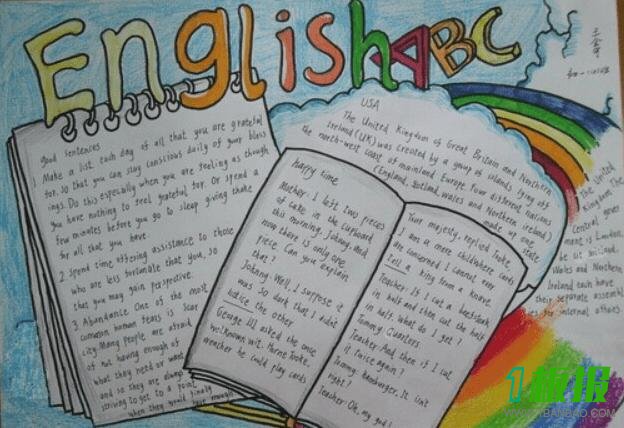 English ABC
good sentences
1 Make a list each day of all that you are grateful
for. So that you can stay conscious daily of your bless
ings. Do this especially when you are feeling as though
you have nothing to feel grateful for. Or spend a
few minutes before you go to sleep giving thanks
for all that you have.
2. Spend time offering assistance to those
who are less fortunate than you, so
that you may gain perspective.
3. Abundance One of the most
common human fears is scar
city. Many people are afraid
of not having enough of
what they need or want
and so they are always
striving to get to a point
when they would finally
have enough
Happy time
Mother. I left two pieces
of cake in the cupboard
this morning. Johnny. And
now there is only one
piece. Can you explain
that?
Johnny. Well, I suppose it
was so dark that I didn't
notice the other
George III asked the once
wellknown wit. Horne Tooke,
wheacher he could play cards
Your majesty, replied Tooke,
I am a mere child where cards
are concerned I cannot even
Tell a king from a knave
Teacher: If I cut a beefsteak
in half and then cut the half
in half. what do I get?
Tommy Quarters
Teacher And then if I cut
it twice again?
Tommy. Hamburger. It isn't
right?
Teacher: Oh, my god!
USA
The United Kingdom of Great Britain and Northern
Ireland (UK) was created by a group of islands lying off
the north-west coast of mainland Europe Four different nations
(England, Scotland, Wales and Northern ireland)
made up one
state.
The United
Kingdom The
central gover
ment is London,
Wales and Northern
Ireland each have
their separate assembl
ies for internal affairs
板报
WWW.1BANBAO.COM